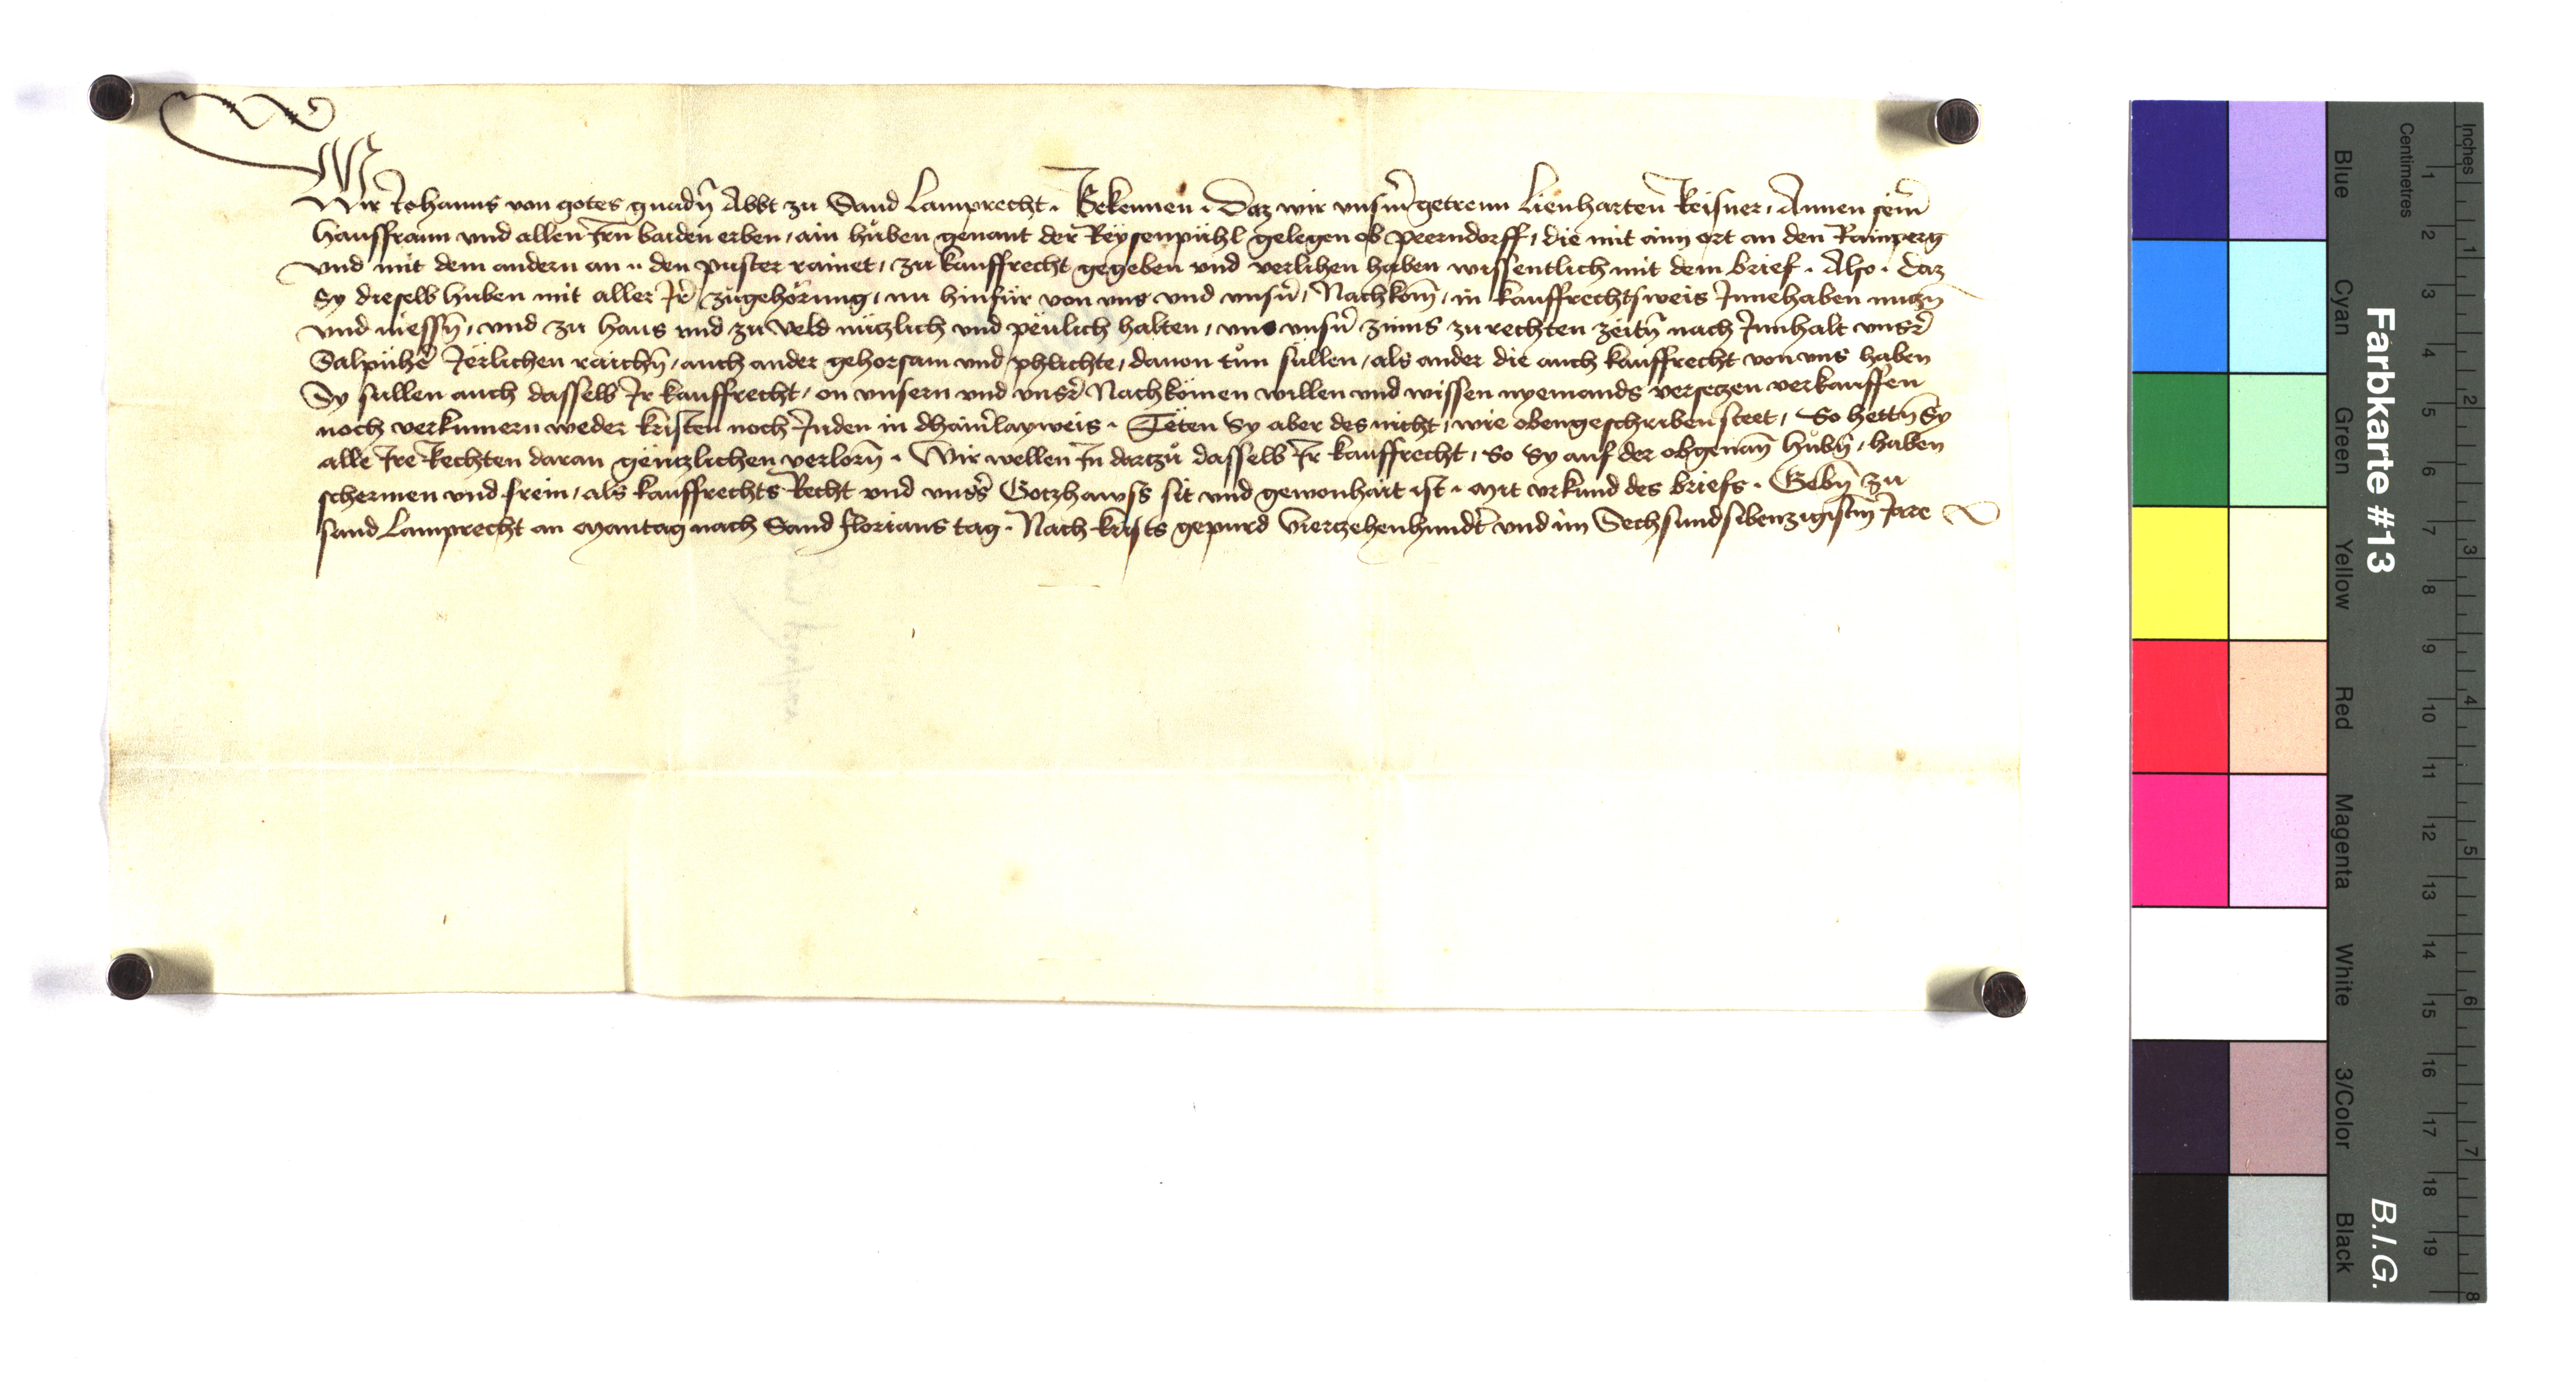 Wir Johanns von gotes gnadn̄ Abbt zu Sand Lamprecht. Bekennen. Daz wir unserm̄ getrewn Lienharten Reisner, Annen sein̄
hausfraun und allen irn̄ baiden erben, ain hůben genant der Reysenpühl gelegen ob Peerndorff, die mit aim ort an den Rainperg
und mit dem andern an den puster rainet, zu kauffrecht gegeben und verlihen haben wissentlich mit dem brief. Also. daz
Sy dieselb huben mit aller Jr̄ zůgehörung, nu hinfür von uns und unsn̄, Nachkom̄, in kauffrechtsweis Jnnehaben nutzn̄
und niessn̄, und zu haus und zu veld nützlich und peulich halten, uns unsn̄ zinns zu rechten zeitn̄ nach Jnnhalt unsr̄
Salpůhs Jerlichen raichn̄, auch ander gehorsam und phlichte, davon tůn sullen, als ander die auch kauffrecht von uns haben
Sy sullen auch dasselb Jr kauffrecht, on unsern und unsr̄ Nachkömen willen und wissen nyemands versetzen verkauffen
noch verkumern weder kristen noch Juden in dhain̄layweis. Teten Sy aber des nicht, wie obengeschriben steet, So hettn̄ Sy
alle Jre Rechten daran gentzlichen verlorn̄. Wir wellen Jn dartzů dasselb Jr kauffrecht, So Sy auf der obgenan̄ hůbn̄, haben
schermen und frein, als kauffrechts Recht und unsrs̄ Gotzhawss sit und gewonhait ist. Mit urkund des briefs. Gebn̄ zu
sand Lamprecht an Mantag nach Sand Florians tag. Nach Krists gepurd Vierzehenhundt̄ und im Sechsundsibenzigistm̄ Jare
Farbkarte #13
B.I.G.
Inches
Centimetres
1 2 3 4 5 6 7 8 9 10 11 12 13 14 15 16 17 18 19
1 2 3 4 5 6 7 8
Blue
Cyan
Green
Yellow
Red
Magenta
White
3/Color
Black